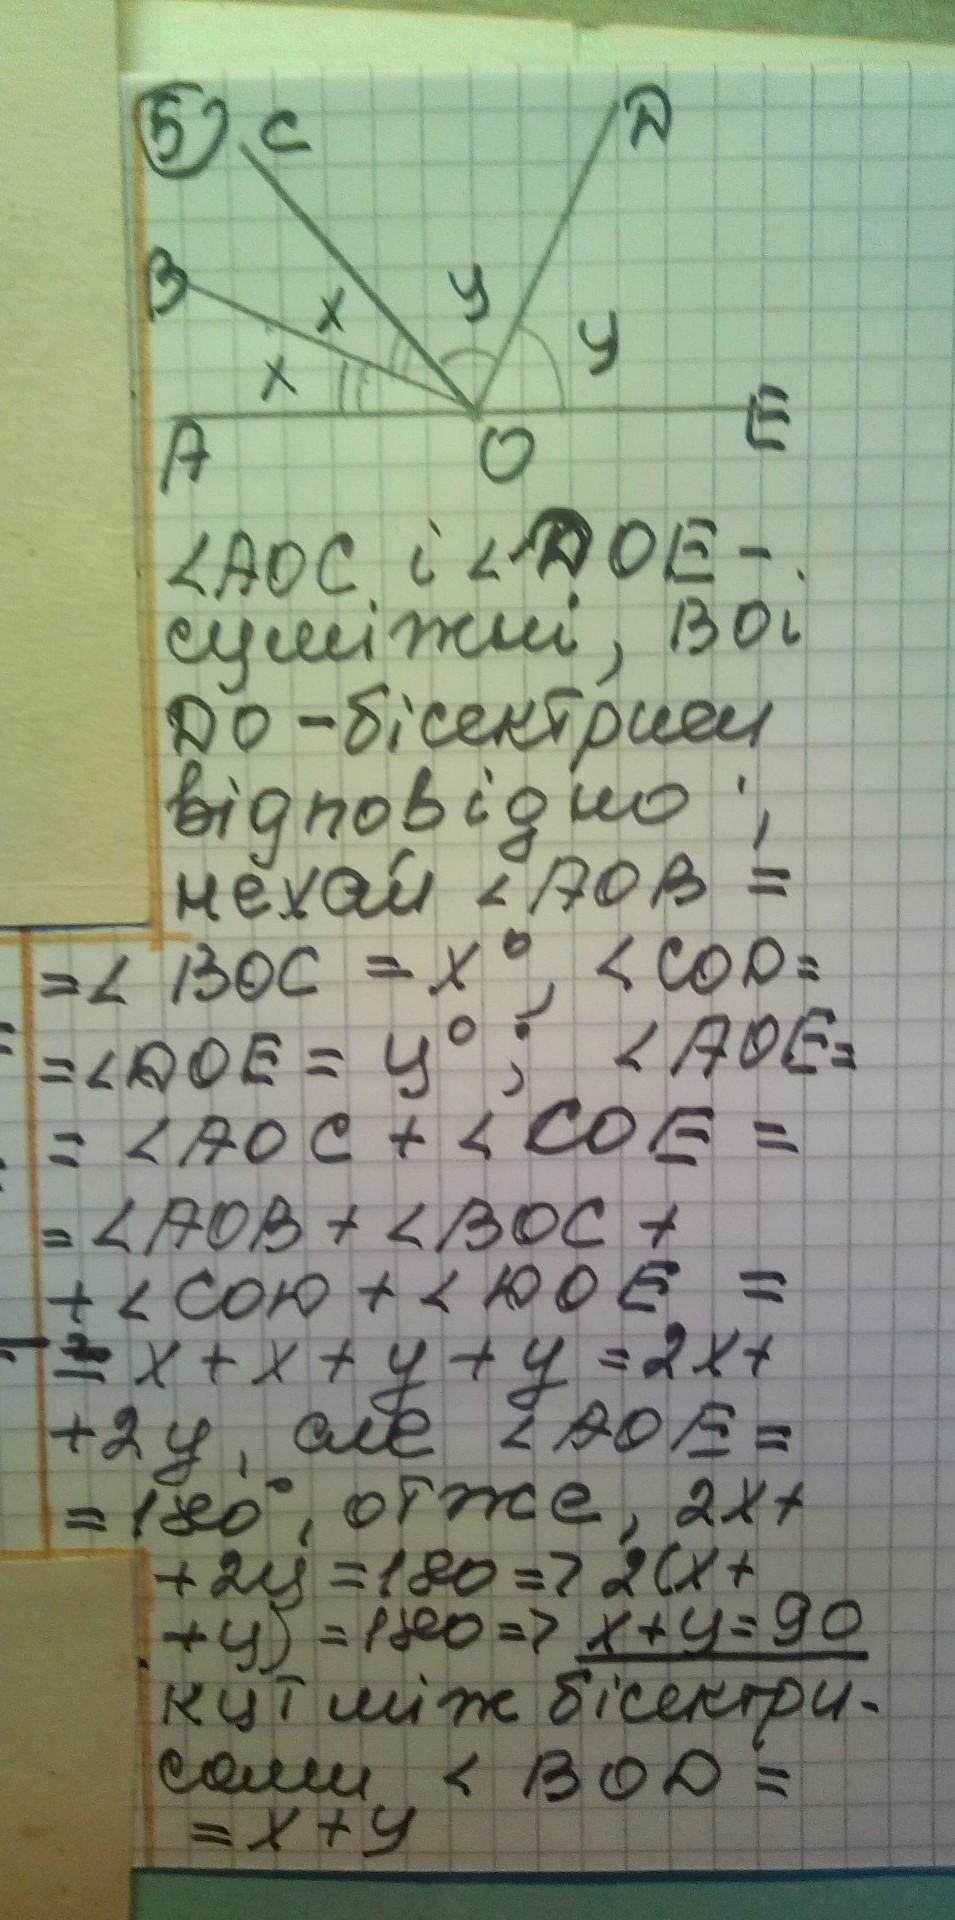 5) C D
B x y y
x
A O E
∠AOC і ∠DOE -
суміжні, BO і
DO - бісектриси
відповідно ;
нехай ∠AOB =
= ∠BOC = x°, ∠COD =
= ∠DOE = y° ; ∠AOE =
= ∠AOC + ∠COE =
= ∠AOB + ∠BOC +
+ ∠COD + ∠DOE =
= x + x + y + y = 2x +
+ 2y, але ∠AOE =
= 180°, отже, 2x +
+ 2y = 180 => 2(x +
+ y) = 180 => x + y = 90
кут між бісектри-
сами ∠BOD =
= x + y